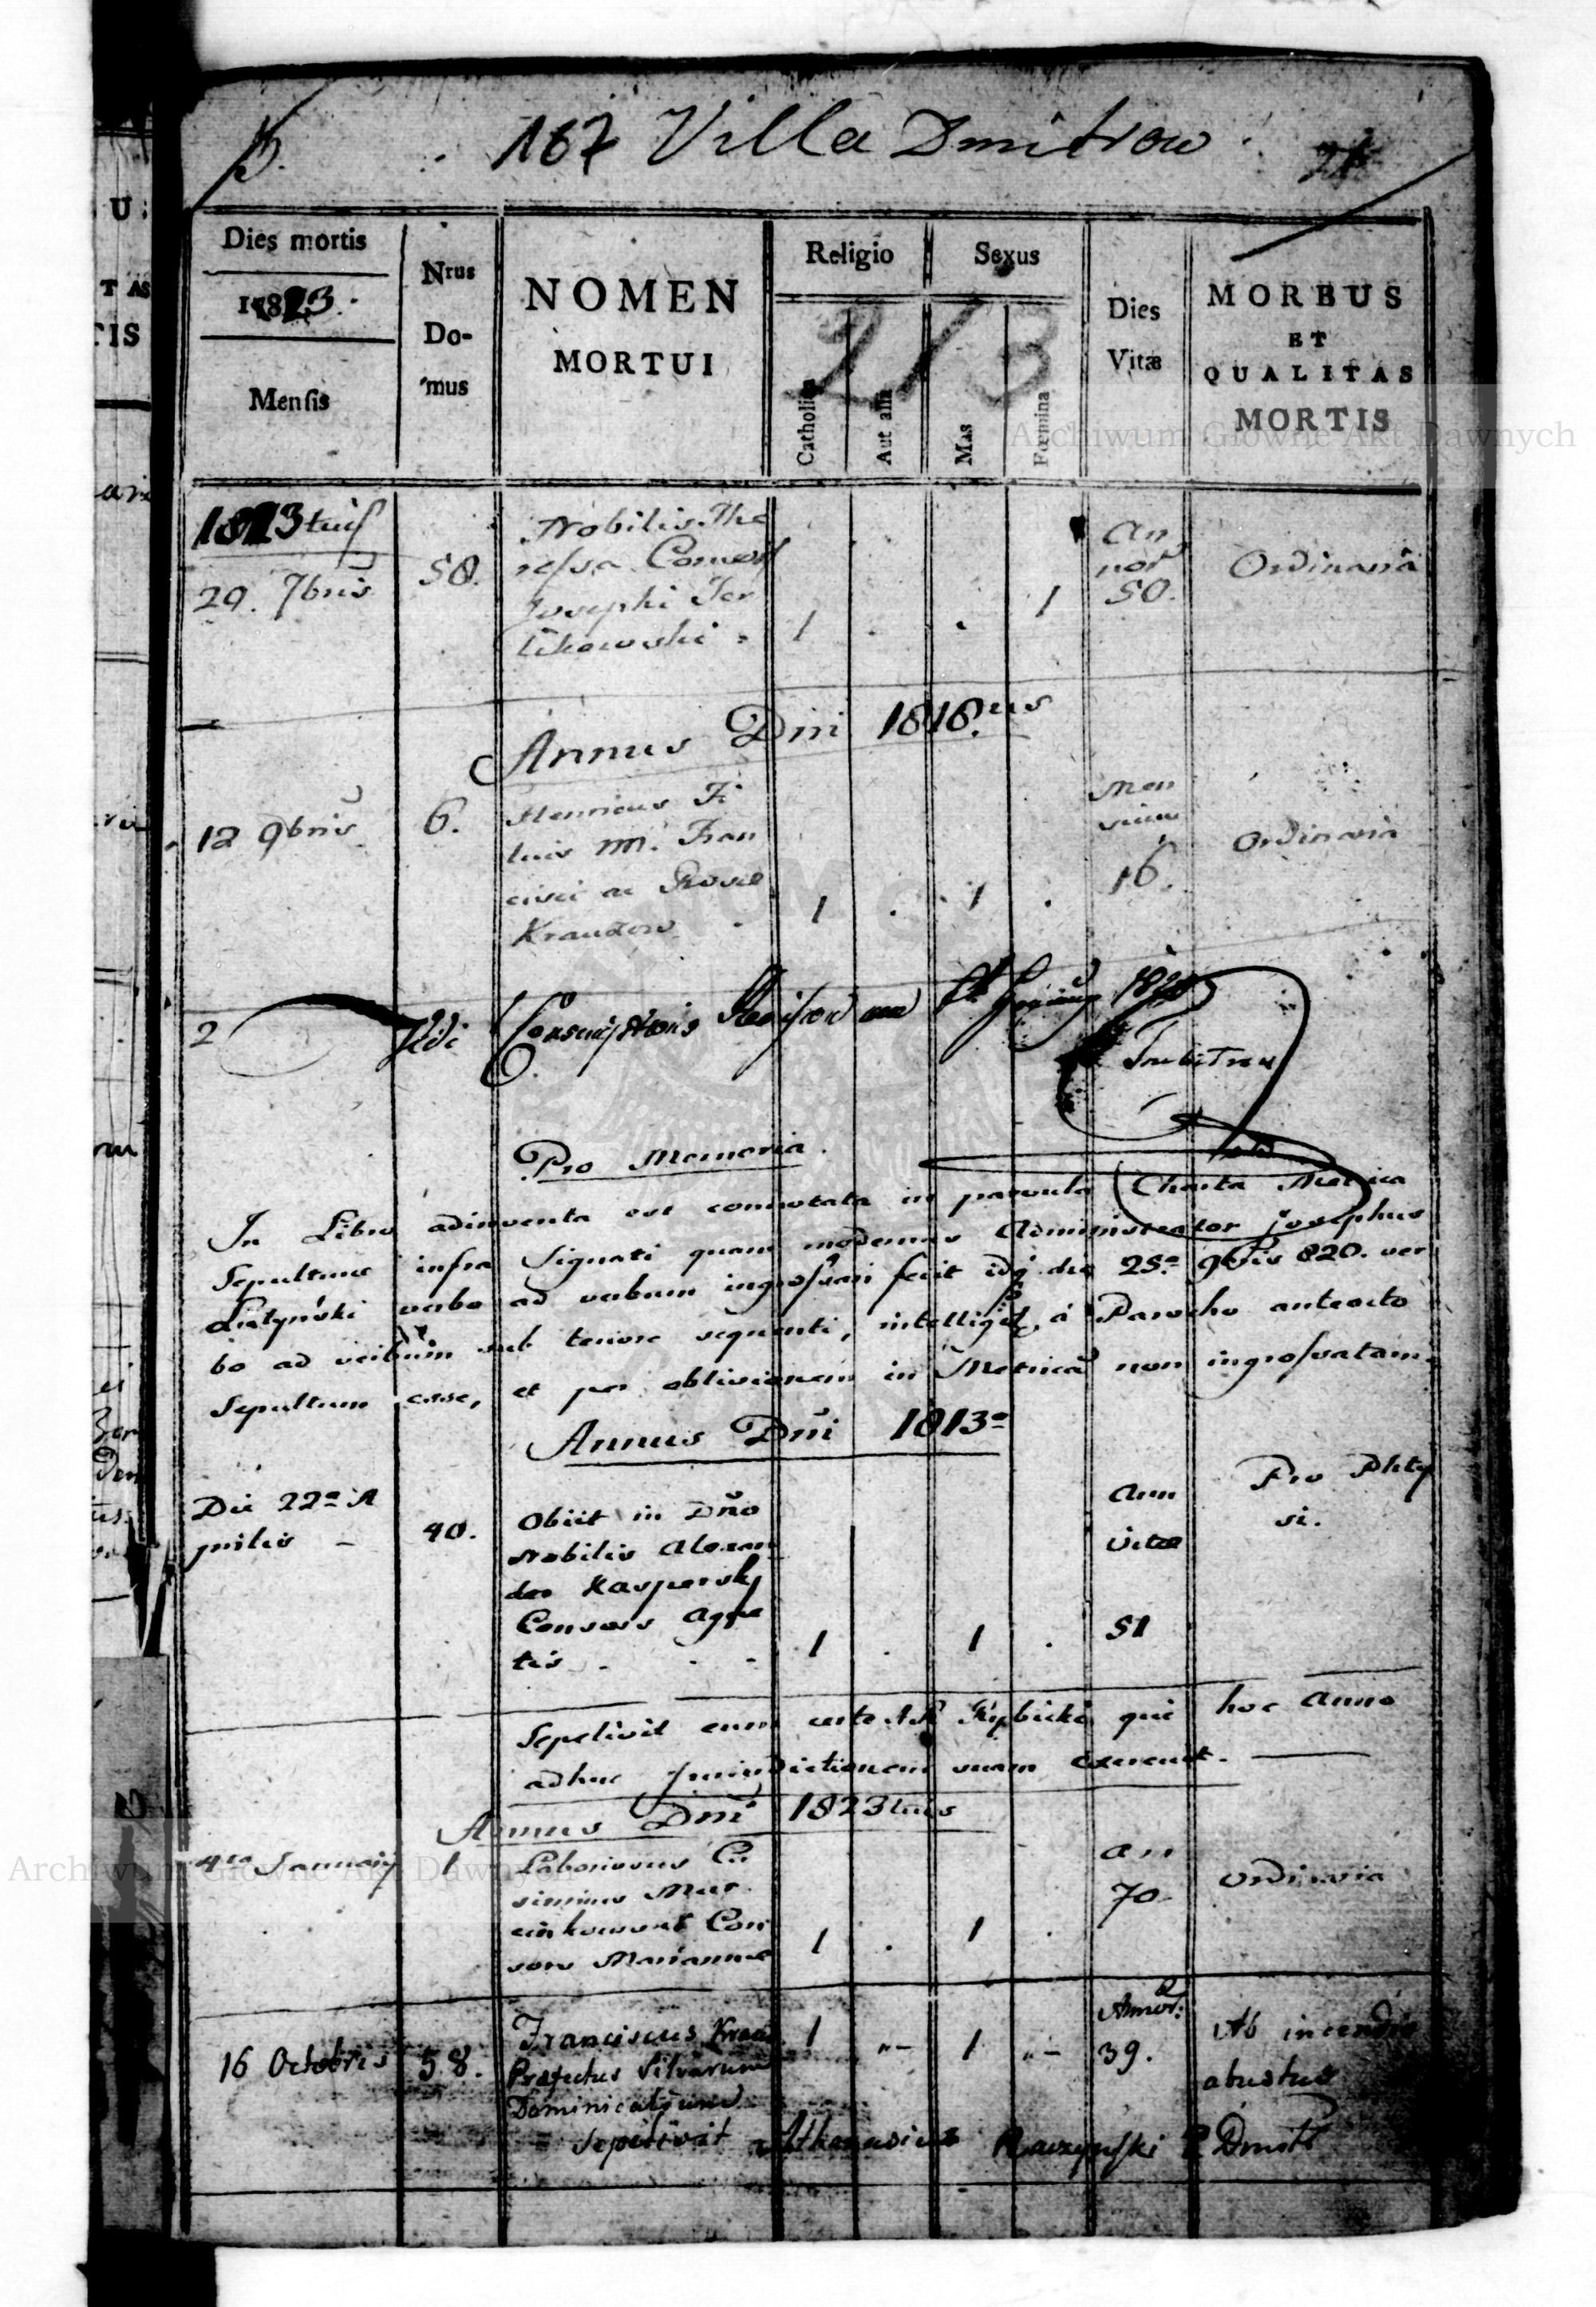 167 Villa Dmitrow
Dies mortis
1823.
Mensis
Nrus
Do-
mus
NOMEN
MORTUI
Religio
Catholica
Aut alia
Sexus
Mas
Foemina
213
Dies
Vitæ
MORBUS
ET
QUALITAS
MORTIS
Archiwum Główne Akt Dawnych
1813tius
29. 7bris
50.
Nobilis The
ressa Consors
Josephi Ter
likowski
1 . . 1
An
nor
50.
Ordinaria
Annus Dni 1818.us
12 9bris
6.
Henricus Fi
lius M. Fran
cisci ac Rosae
Krauzow
1 . 1 .
Men
sium
16.
Ordinaria
2
Vidi Conscriptions Revision am
Pro Memoria.
In Libro adinventa est connotata in parvula Charta Metrica
Sepultus infra Signati quam modernus Administrator Josephus
verbo ad verbum ingrossari fecit idq die 25a 9bris 820. ver
bo ad verbum sub tenore sequenti, intelligit, a Parocho anteacto
Sepultum esse, et per oblivionem in Metrica non ingrossatam.
Annus Dni 1813o
Die 22a A
prilis -
40.
Obiit in Dno
Nobilis Alexan
der Kaspersky
Consors Agne
tis - - -
1 . 1 .
Ann
vitae
51
Pro Phty
si.
Sepelivit eum certe AR Rybicki qui hoc Anno
adhuc Jurisdictionem suam exercuit.
Annus Dni 1823tius
4ta Januarij
1
Laboriosus Ca
simirus Mar
cinkowski Con
sors Marianna
1 . 1 .
an
70
ordinaria
Archiwum Główne Akt Dawnych
16 Octobris
58.
Franciscus Krauz
Præfectus Silvarum
Dominicalium
1 "- 1 "-
Annor.
39.
Ab incendio
abustus
Sepelivit Athanasius Raczynski P. Dmit